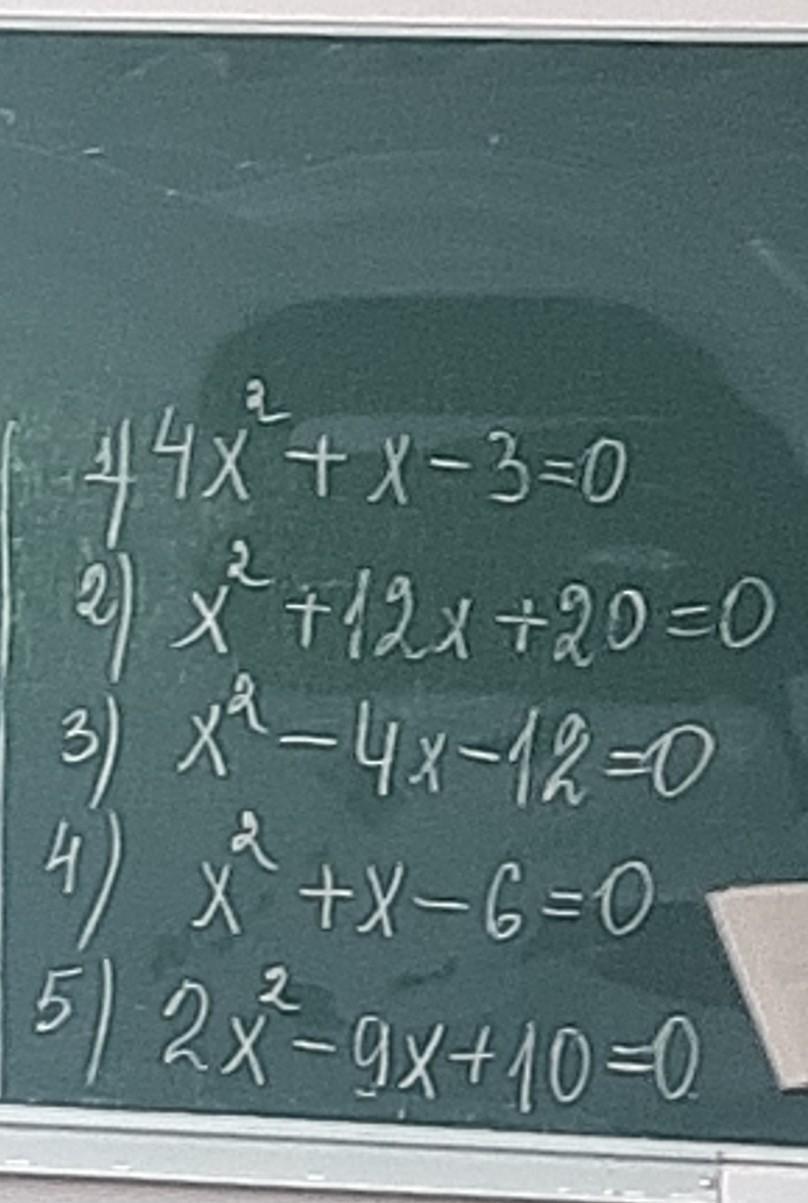 1) 4x² + x - 3 = 0
2) x² + 12x + 20 = 0
3) x² - 4x - 12 = 0
4) x² + x - 6 = 0
5) 2x² - 9x + 10 = 0